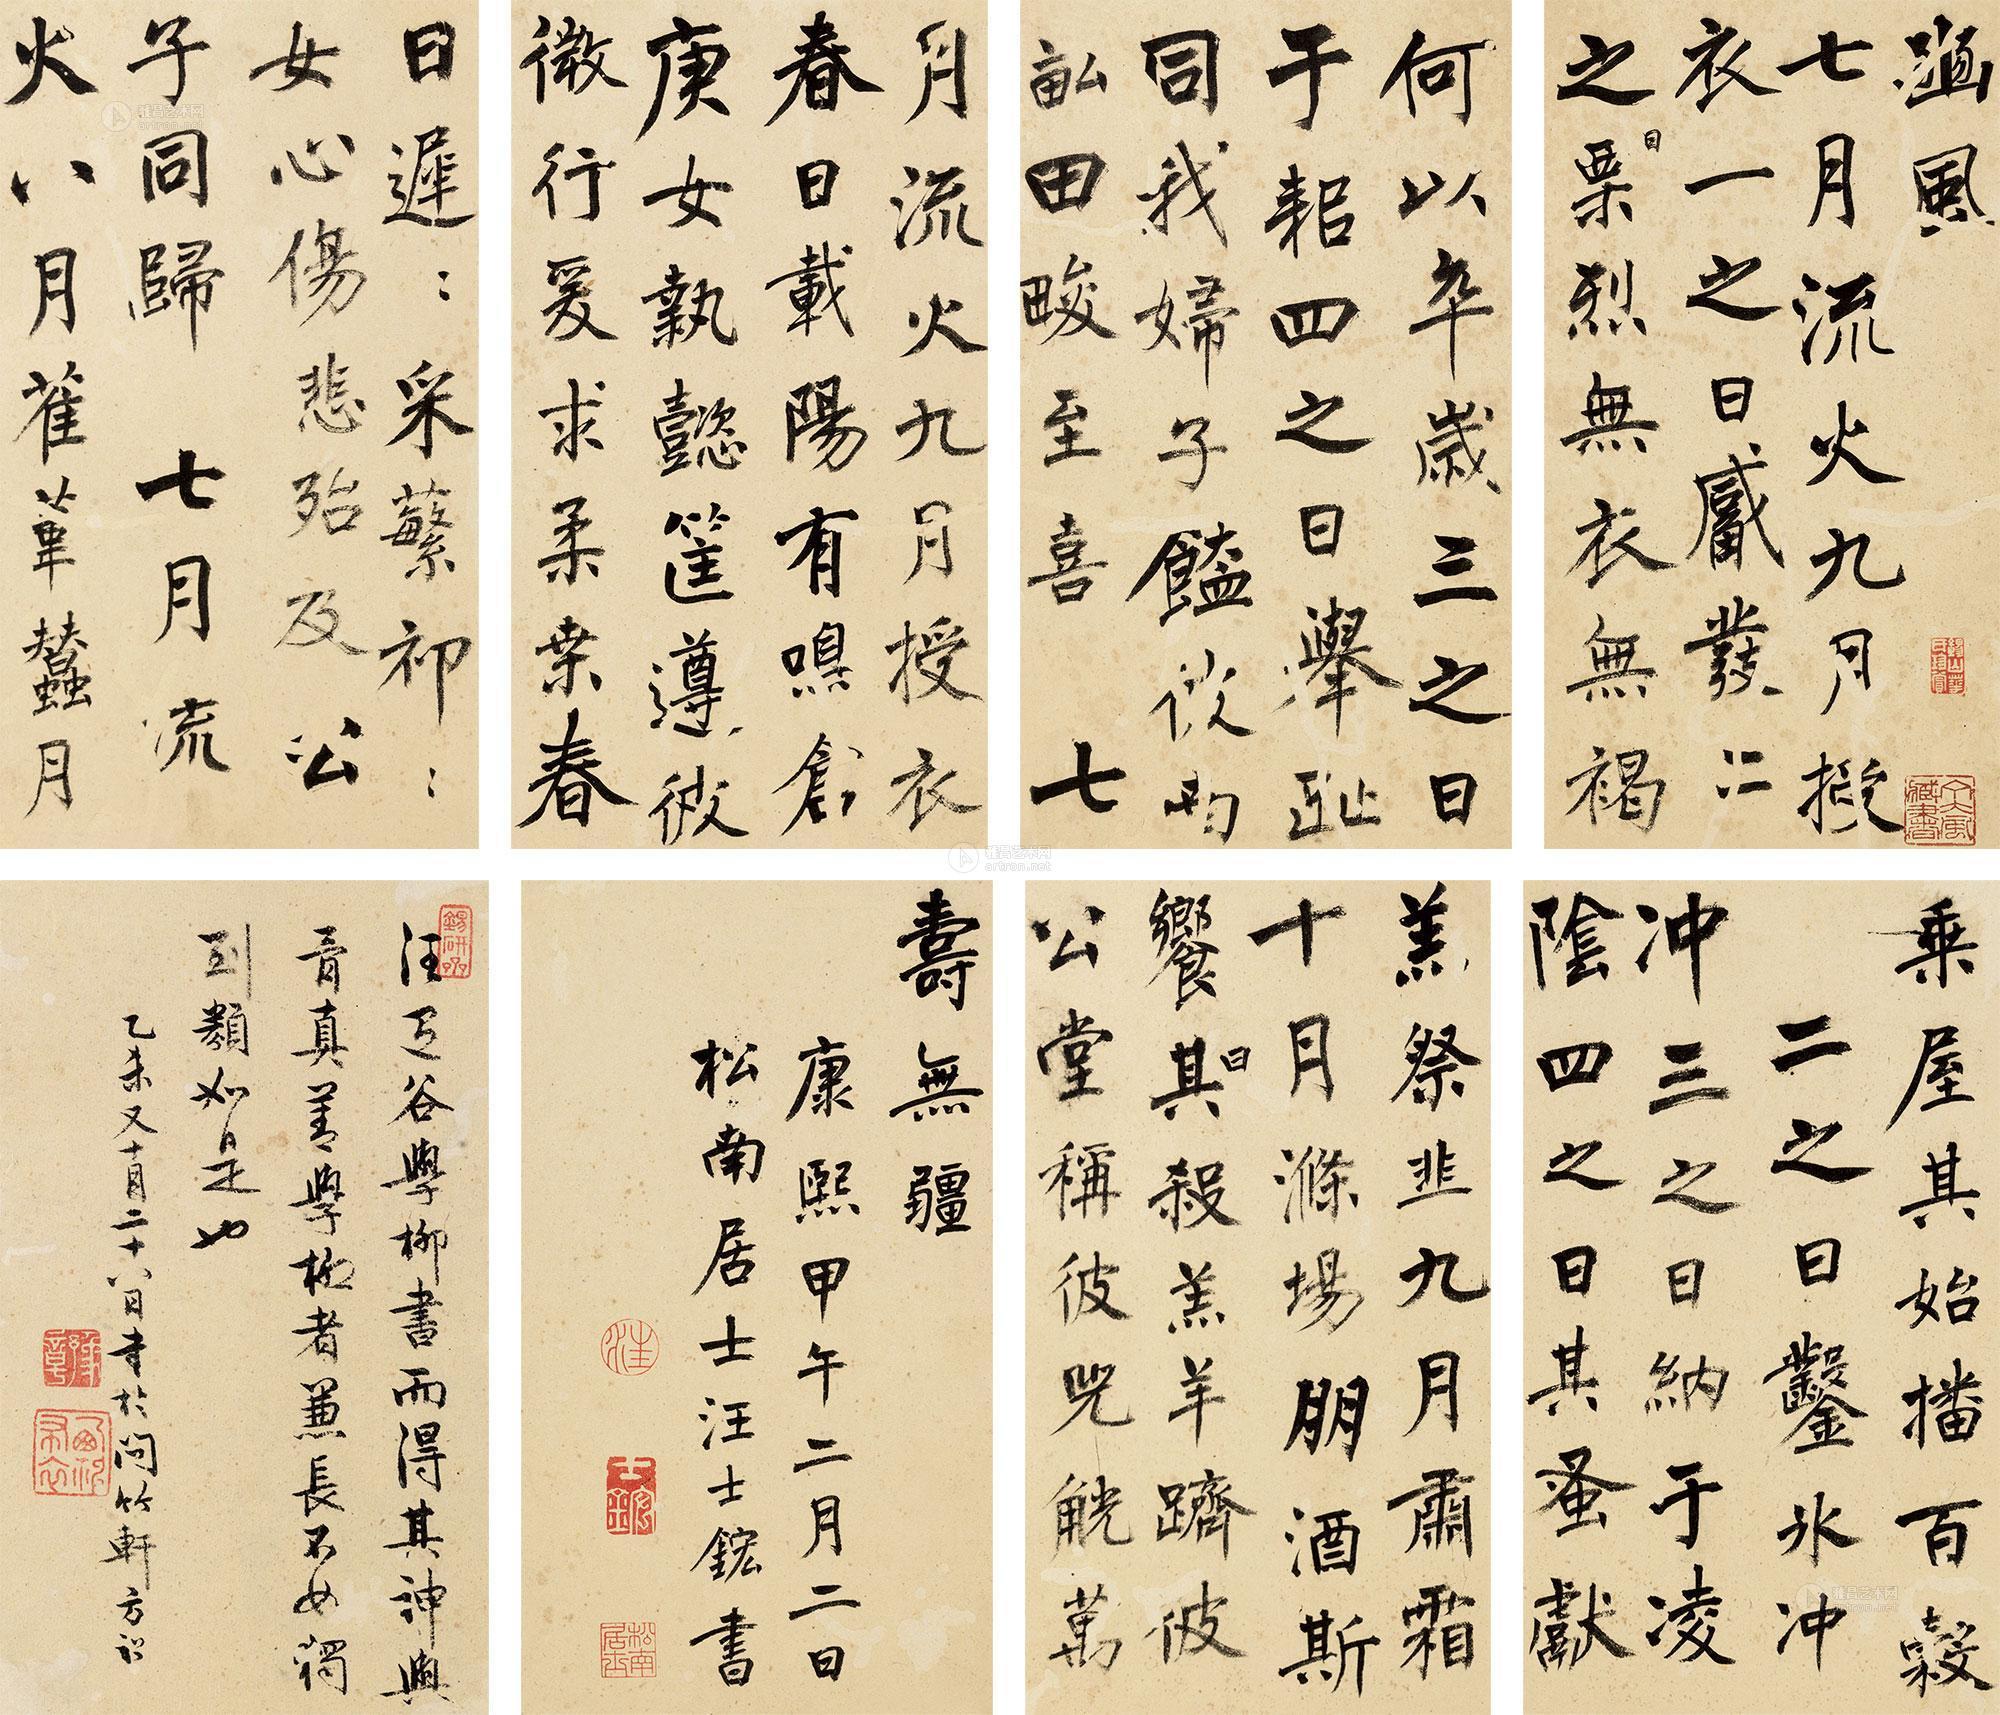 豳風
七月流火九月授
衣一之日觱發二
之日栗烈無衣無褐
何以卒歲三之日
于耜四之日舉趾
同我婦子饁彼南
畝田畯至喜 七
月流火九月授衣
春日載陽有鳴倉
庚女執懿筐遵彼
微行爰求柔桑春
日遲:采蘩祁:
女心傷悲殆及公
子同歸 七月流
火八月萑葦蠶月
乘屋其始播百穀
二之日鑿冰冲
冲三之日納于凌
陰四之日其蚤獻
羔祭韭九月肅霜
十月滌場朋酒斯
饗曰其殺羔羊躋彼
公堂稱彼兕觥萬
壽無疆
康熙甲午二月二日
松南居士汪士鋐書
汪退谷學柳書而得其神與
骨真善學柳者兼長不必獨
到類如是也
乙未又十月二十八日書於問竹軒方詔
汪
士鋐
松南居士
雅昌艺术网
artron.net